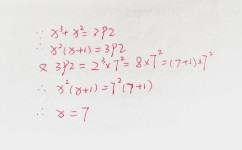 ∵ x³+x²=392
∴ x²(x+1)=392
又 392=2³×7²=8×7²=(7+1)×7²
∴ x²(x+1)=7²(7+1)
∴ x=7